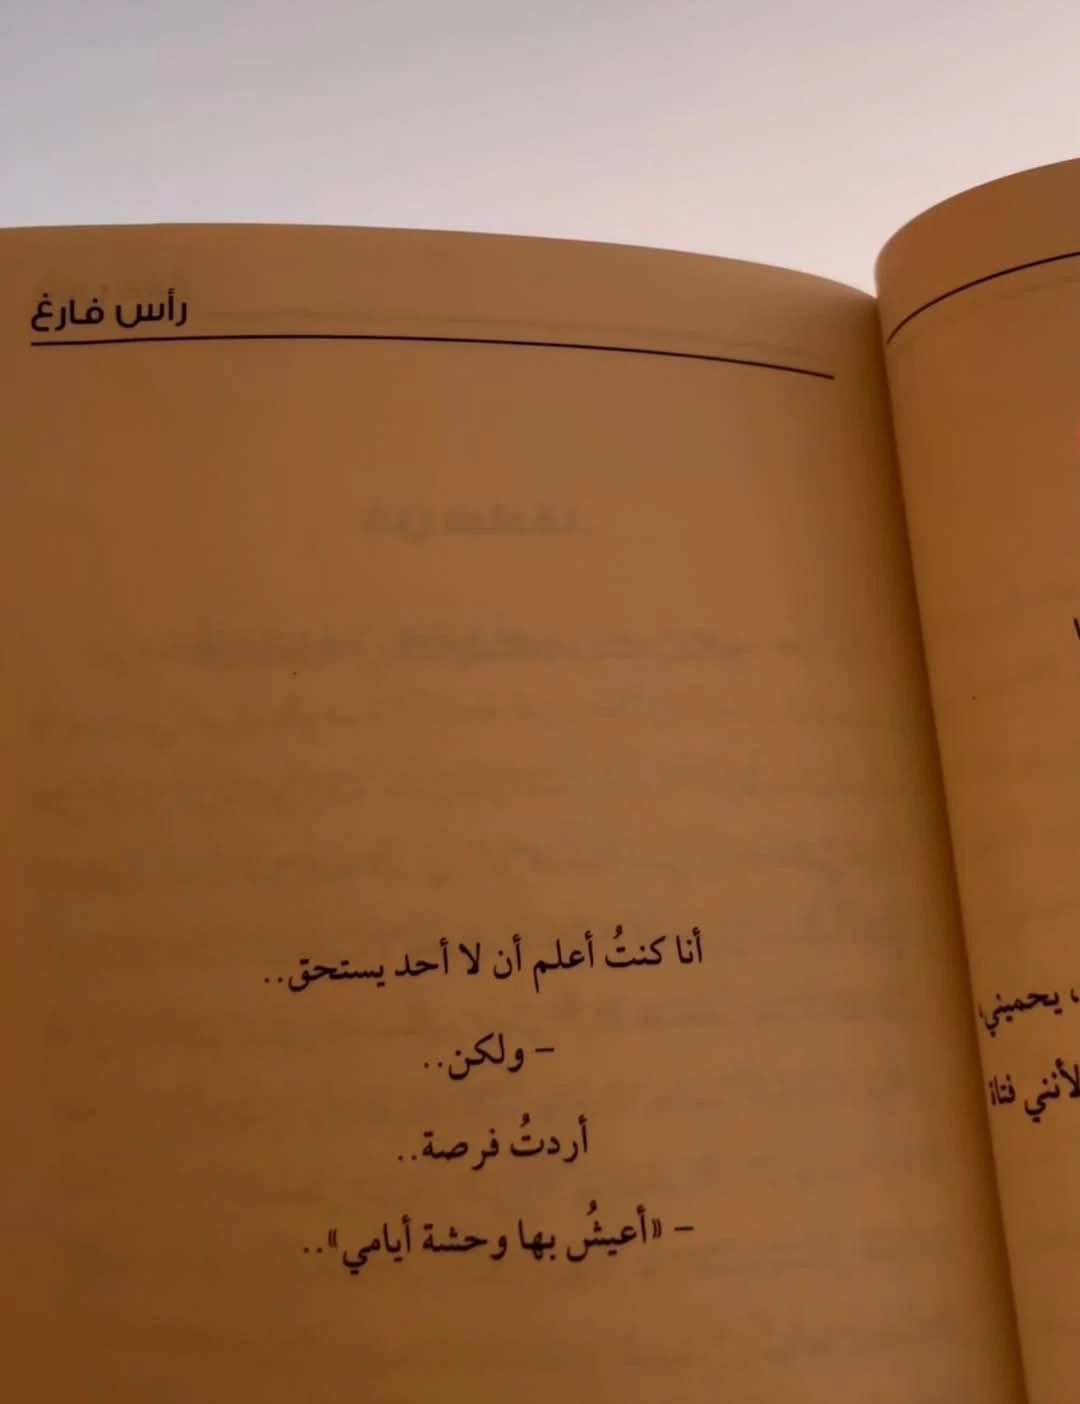 رأس فارغ
أنا كنتُ أعلم أن لا أحد يستحق..
– ولكن..
أردتُ فرصة..
– «أعيشُ بها وحشة أيامي»..
، يحميني،
لأنني فتاة